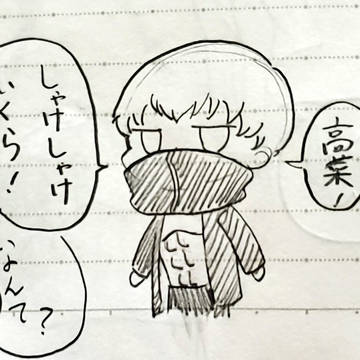 高菜！
しゃけしゃけ
いくら！
なんて
？